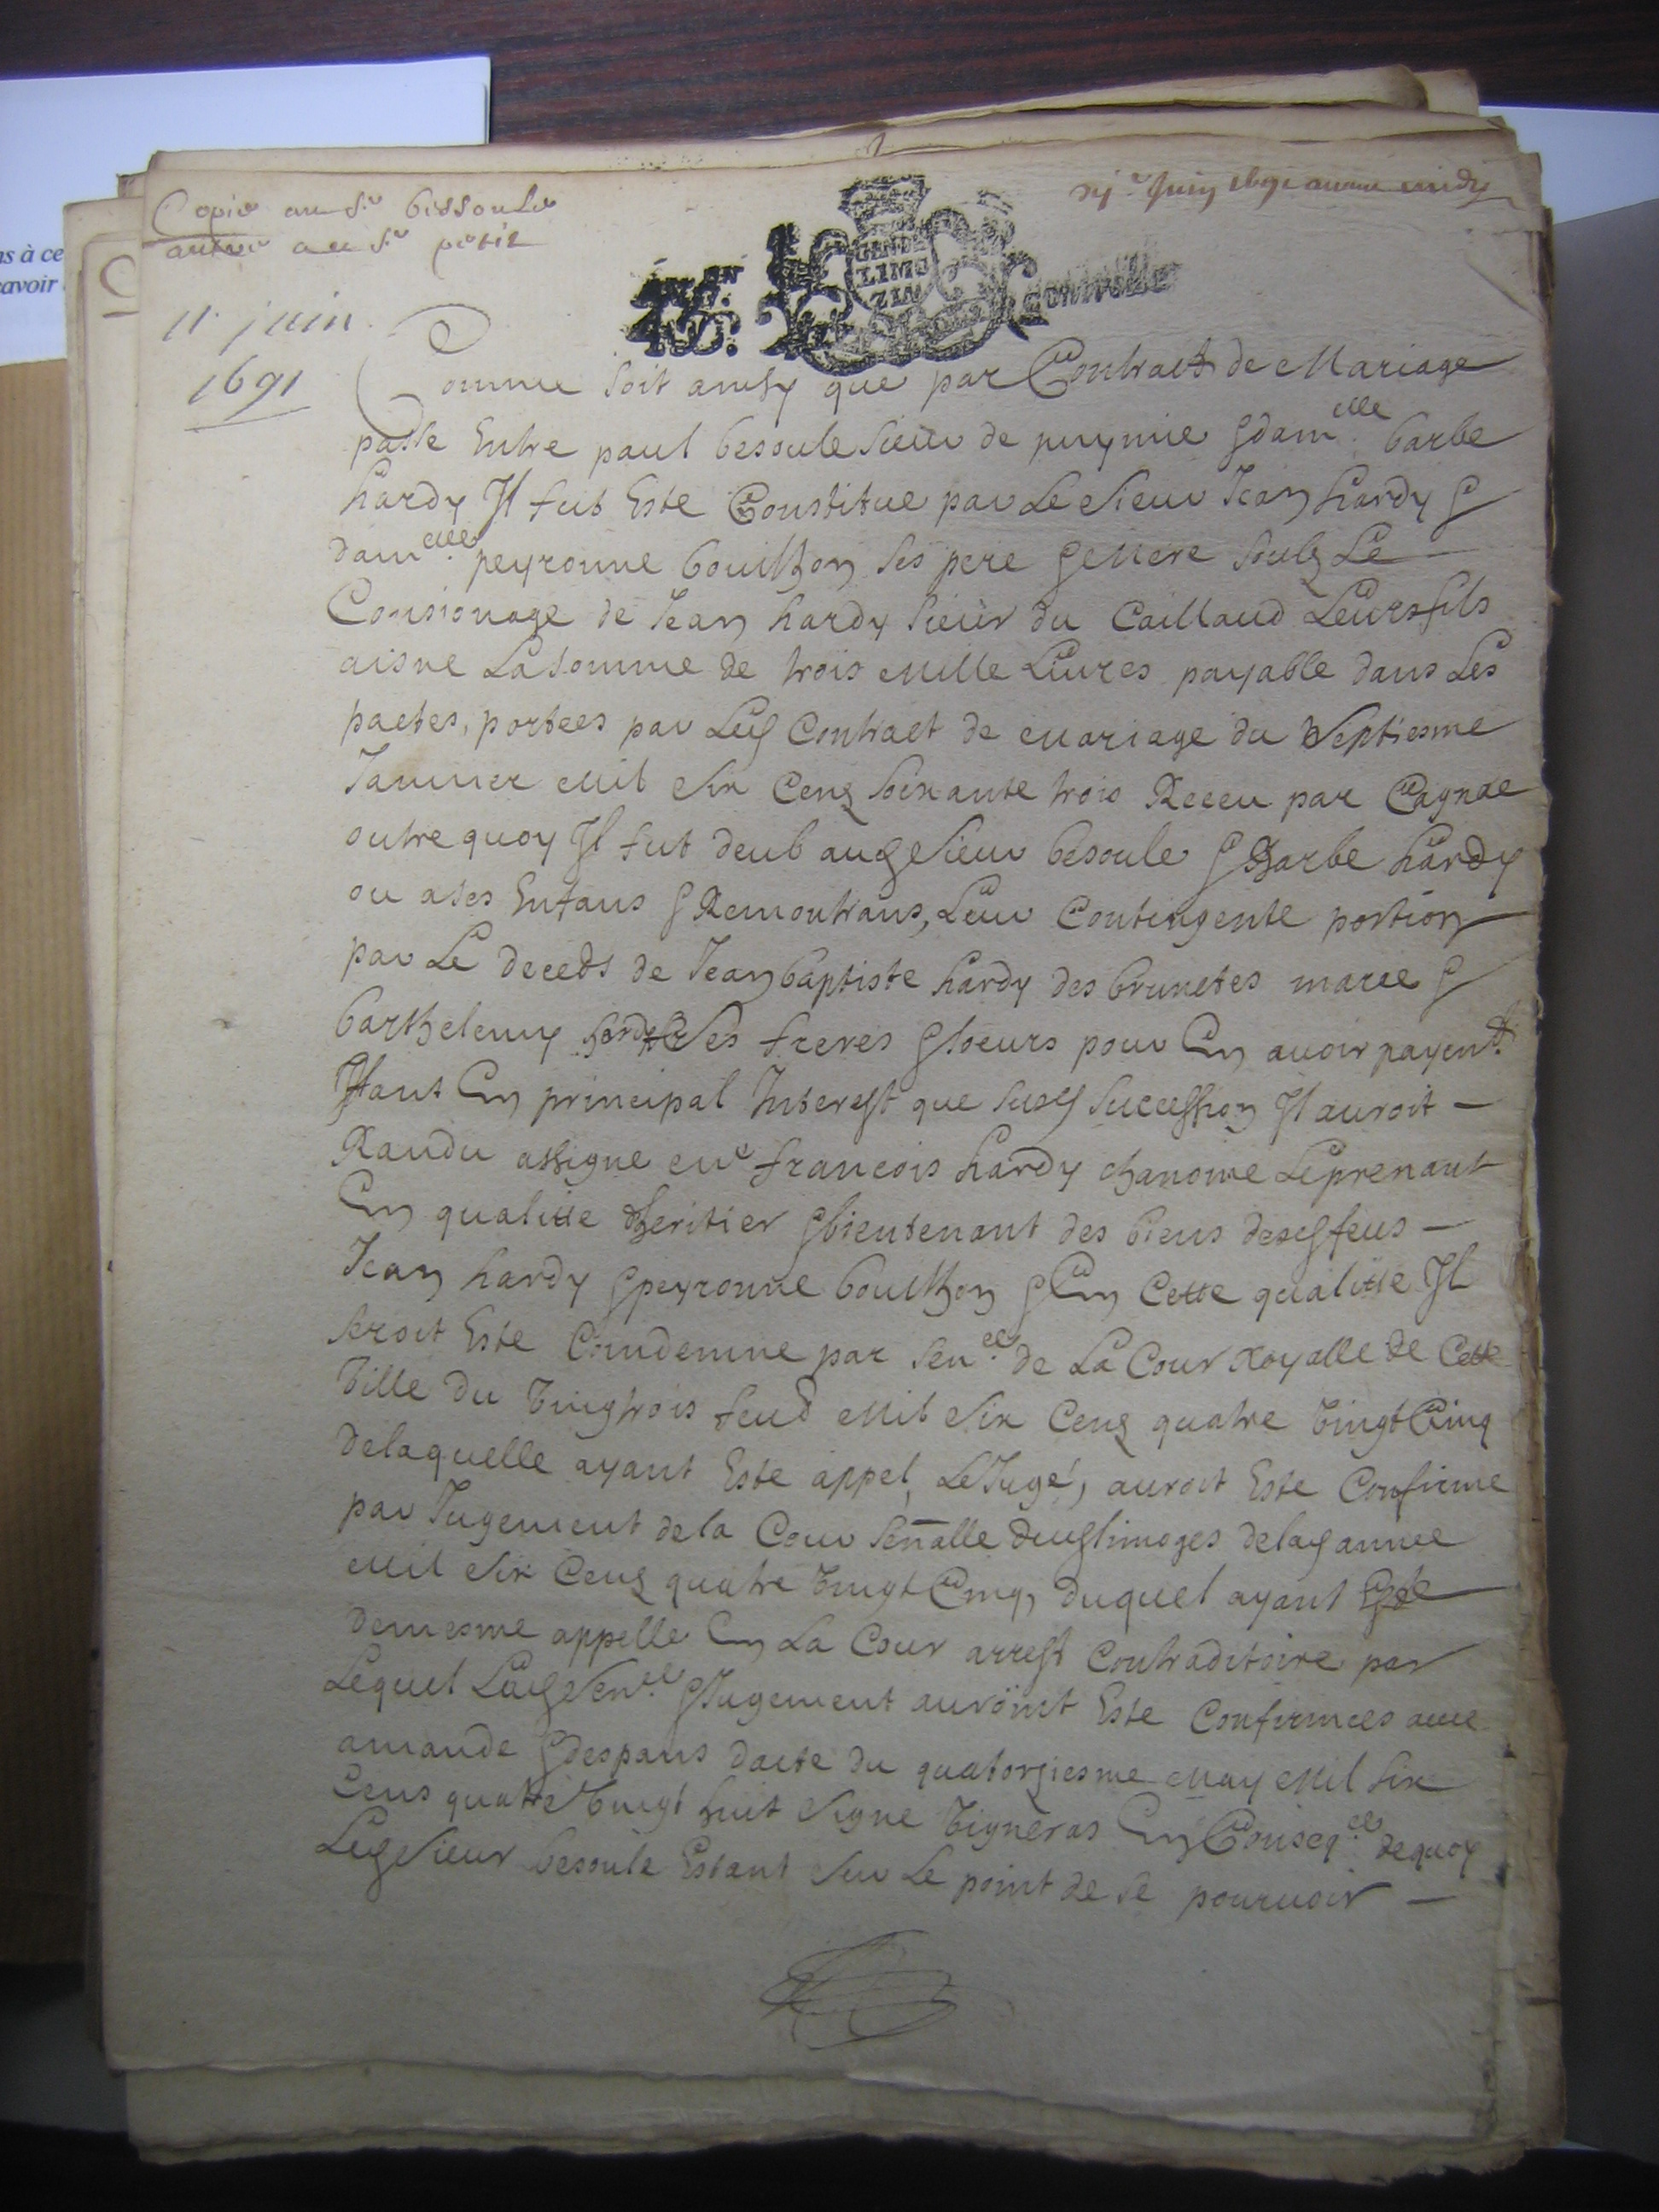 ns à ce
avoir
Copie au Sr bissoule
autre au Sr petit
xj.e Juin
GENER
LIMO
ZIN
11 juin
1691
Comme soit ainsy que par Contract de Mariage
passe Entre paul besoule sieur de puymie & damelle barbe
hardy Il fut Este Constitue par Le sieur Jean hardy &
damelle peyronne bouilhon ses pere & Mere soubz Le
Consionage de Jean hardy sieur du Caillaud Leurs fils
aisne La somme de trois Mille Liures payable dans Les
pactes, portees par Led Contract de Mariage du Septiesme
Januier Mil Six Cens soixante trois Receu par
outre quoy Il fut deub aud sieur besoule & Barbe hardy
ou a ses Enfans & Remontrans, Leur Contingente portion
par Le deceds de Jean baptiste hardy des brunetes marie &
barthelemy hardy ses freres & soeurs pour En auoir payemt
Tant En principal Interest que susd succession Il auroit
Randu assigne Me francois hardy chanoine Le prenant
En qualitte dheritier & bientenant des biens desd feus
Jean hardy & peyronne bouilhon & En Cette qualitte Il
seroit Este Condemne par sence de La Cour Royalle de Cette
Ville du Vingtrois feud Mil Six Cens quatre Vingt Cinq
de laquelle ayant Este appel, Le Jugé, auroit Este Confirme
par Jugement de la Cour senalle dud limoges de lad annee
Mil Six Cens quatre Vingt Cinq, duquel ayant Este
demesme appelle En La Cour arrest Contraditoire par
Lequel Lad Sence & Jugement auroint Este Confirmees auec
amande & despans dacte du quatorziesme May Mil Six
Cens quatre Vingt huit signe Vigneras En Conseqce de quoy
Led Sieur besoule Estant Sur Le point de se pouruoir